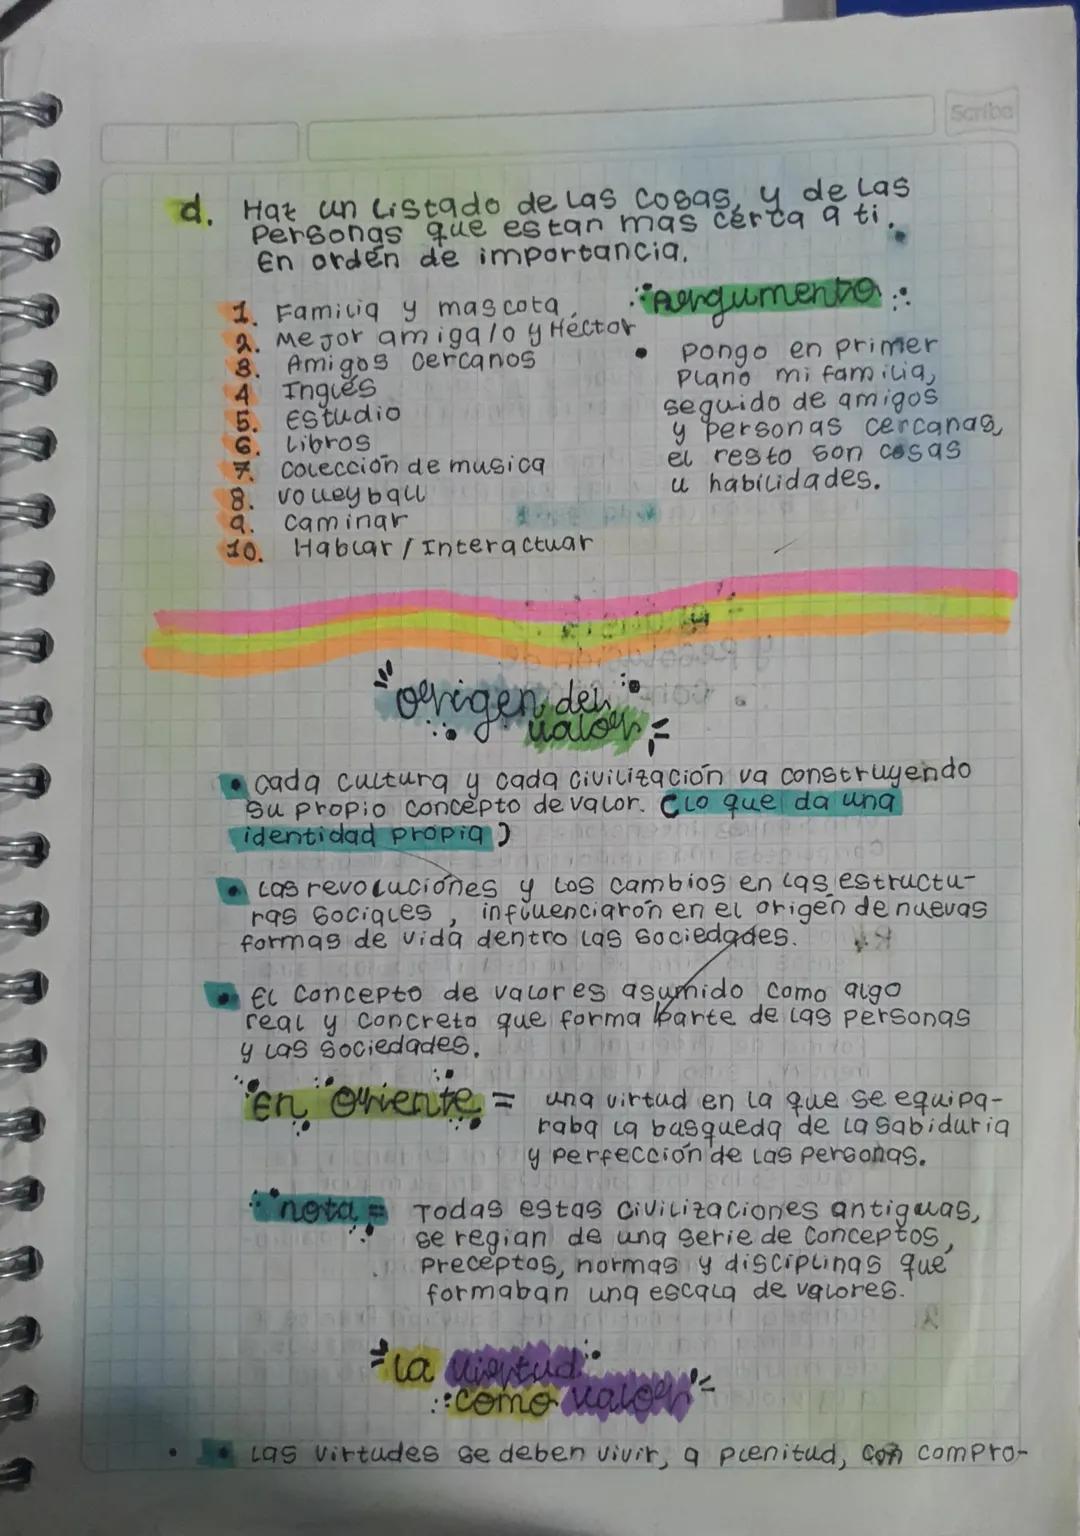 Scribe
d. Haz un Listado de Las cosas, y de Las
Personas que estan mas cerca a ti.
En orden de importancia.
1. Familia y mascota.
2. Mejor amiga/o y Héctor
3. Amigos cercanos
4 Inglés
5. Estudio
6. Libros
7. Colección de musica
8. volleyball
9. Caminar
10. Hablar / Interactuar
Argumento
• Pongo en primer
Plano mi familia,
seguido de amigos
y personas cercanas,
el resto son cosas
u habilidades.
origen del
valor
• Cada cultura y cada civilización va construyendo
su propio concepto de valor. (Lo que da una
identidad propia)
• Las revoluciones y los cambios en las estructu-
ras sociales, influenciaron en el origen de nuevas
formas de vida dentro las sociedades.
• El concepto de valores asumido como algo
real y concreto que forma parte de las personas
y las sociedades.
En oriente = una virtud en la que se equipa-
raba la busqueda de la sabiduria
y perfección de las personas.
nota = Todas estas civilizaciones antiguas,
se regian de una serie de conceptos,
preceptos, normas y disciplinas que
formaban una escala de valores.
La virtud
como valor
• Las virtudes se deben vivir, a plenitud, con compro-